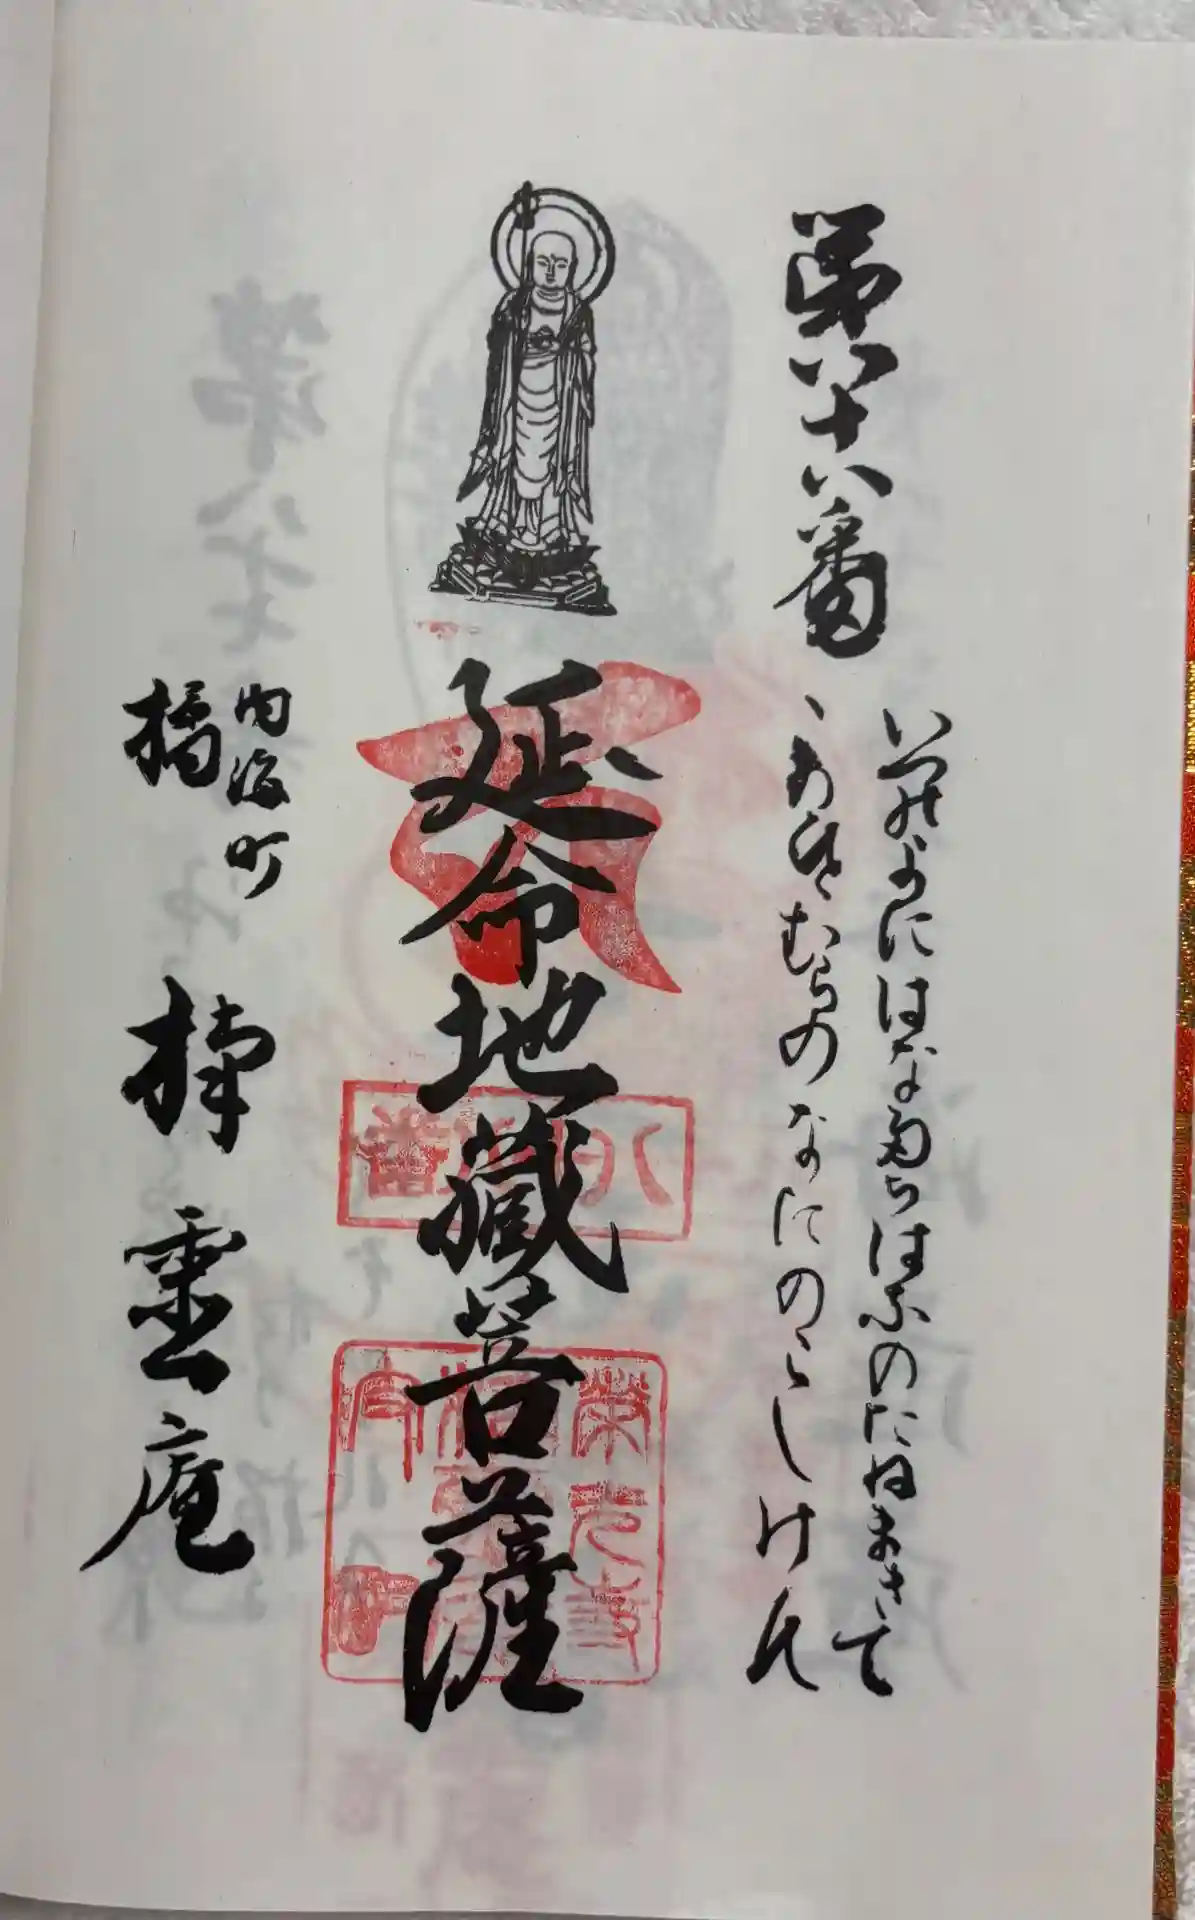 第八十八番
いつのよにはなたちはなのたねまきて
むらのなにのこしけん
延命地蔵菩薩
内海町
橘
楠霊庵